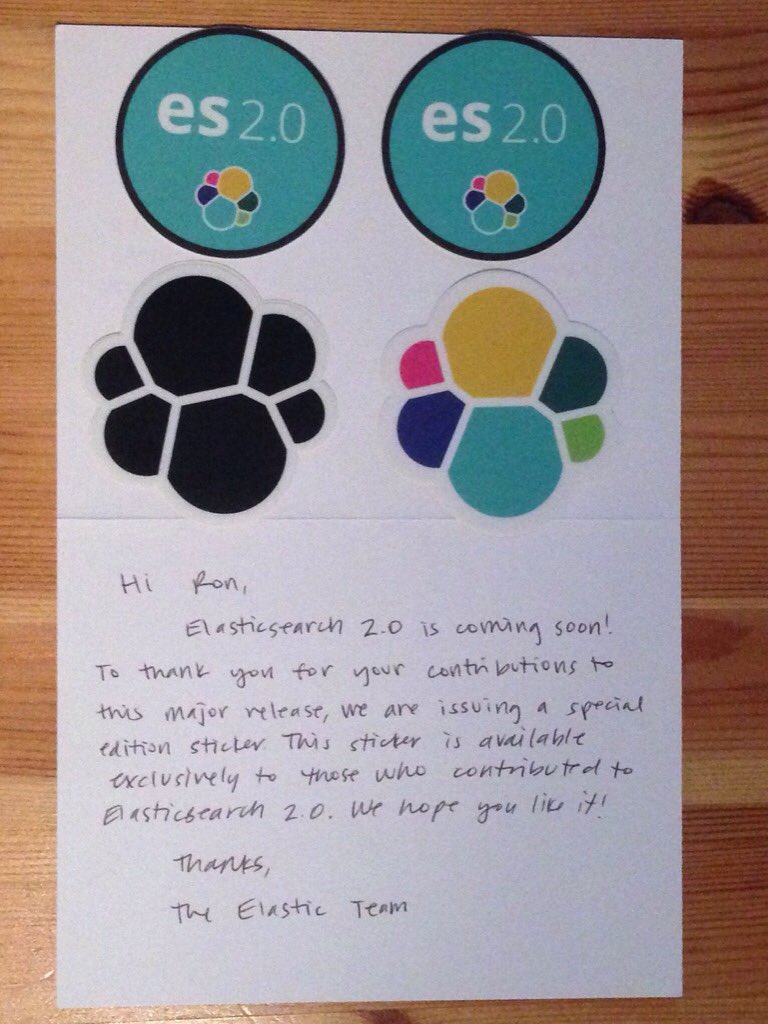 es 2.0
es 2.0
Hi Ron,
Elasticsearch 2.0 is coming soon!
To thank you for your contributions to
this major release, we are issuing a special
edition sticker. This sticker is available
exclusively to those who contributed to
Elasticsearch 2.0. We hope you like it!
Thanks,
The Elastic Team